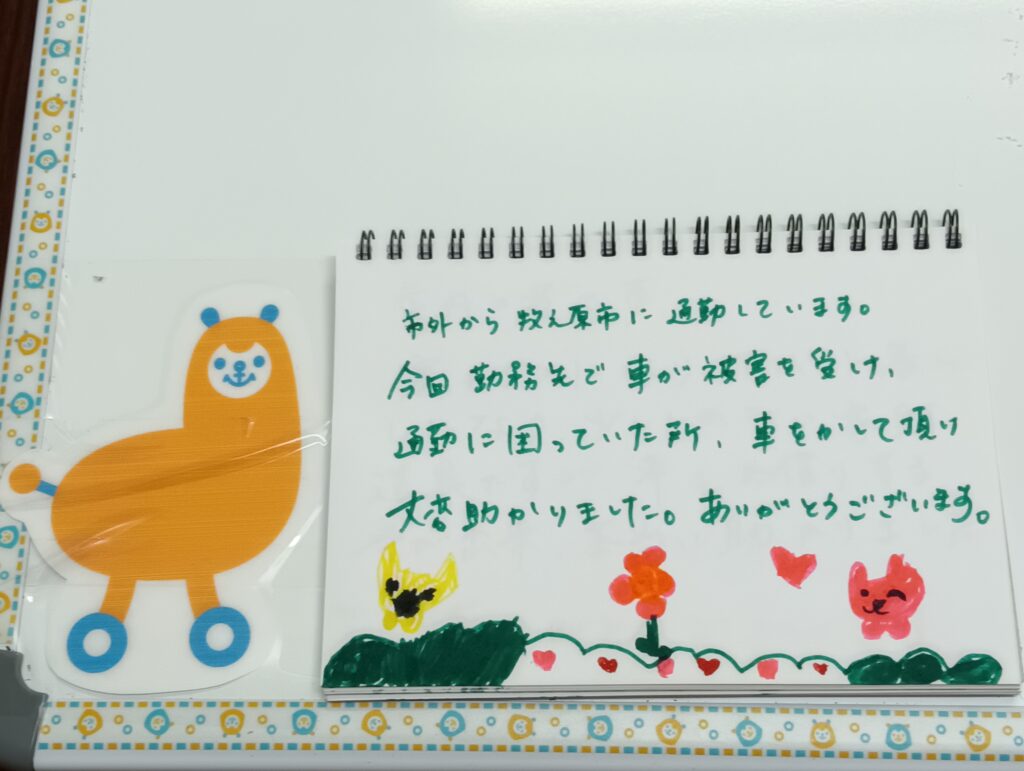 市外から牧之原市に通勤しています。
今回勤務先で車が被害を受け、
通勤に困っていた所、車をかして頂け
大変助かりました。ありがとうございます。